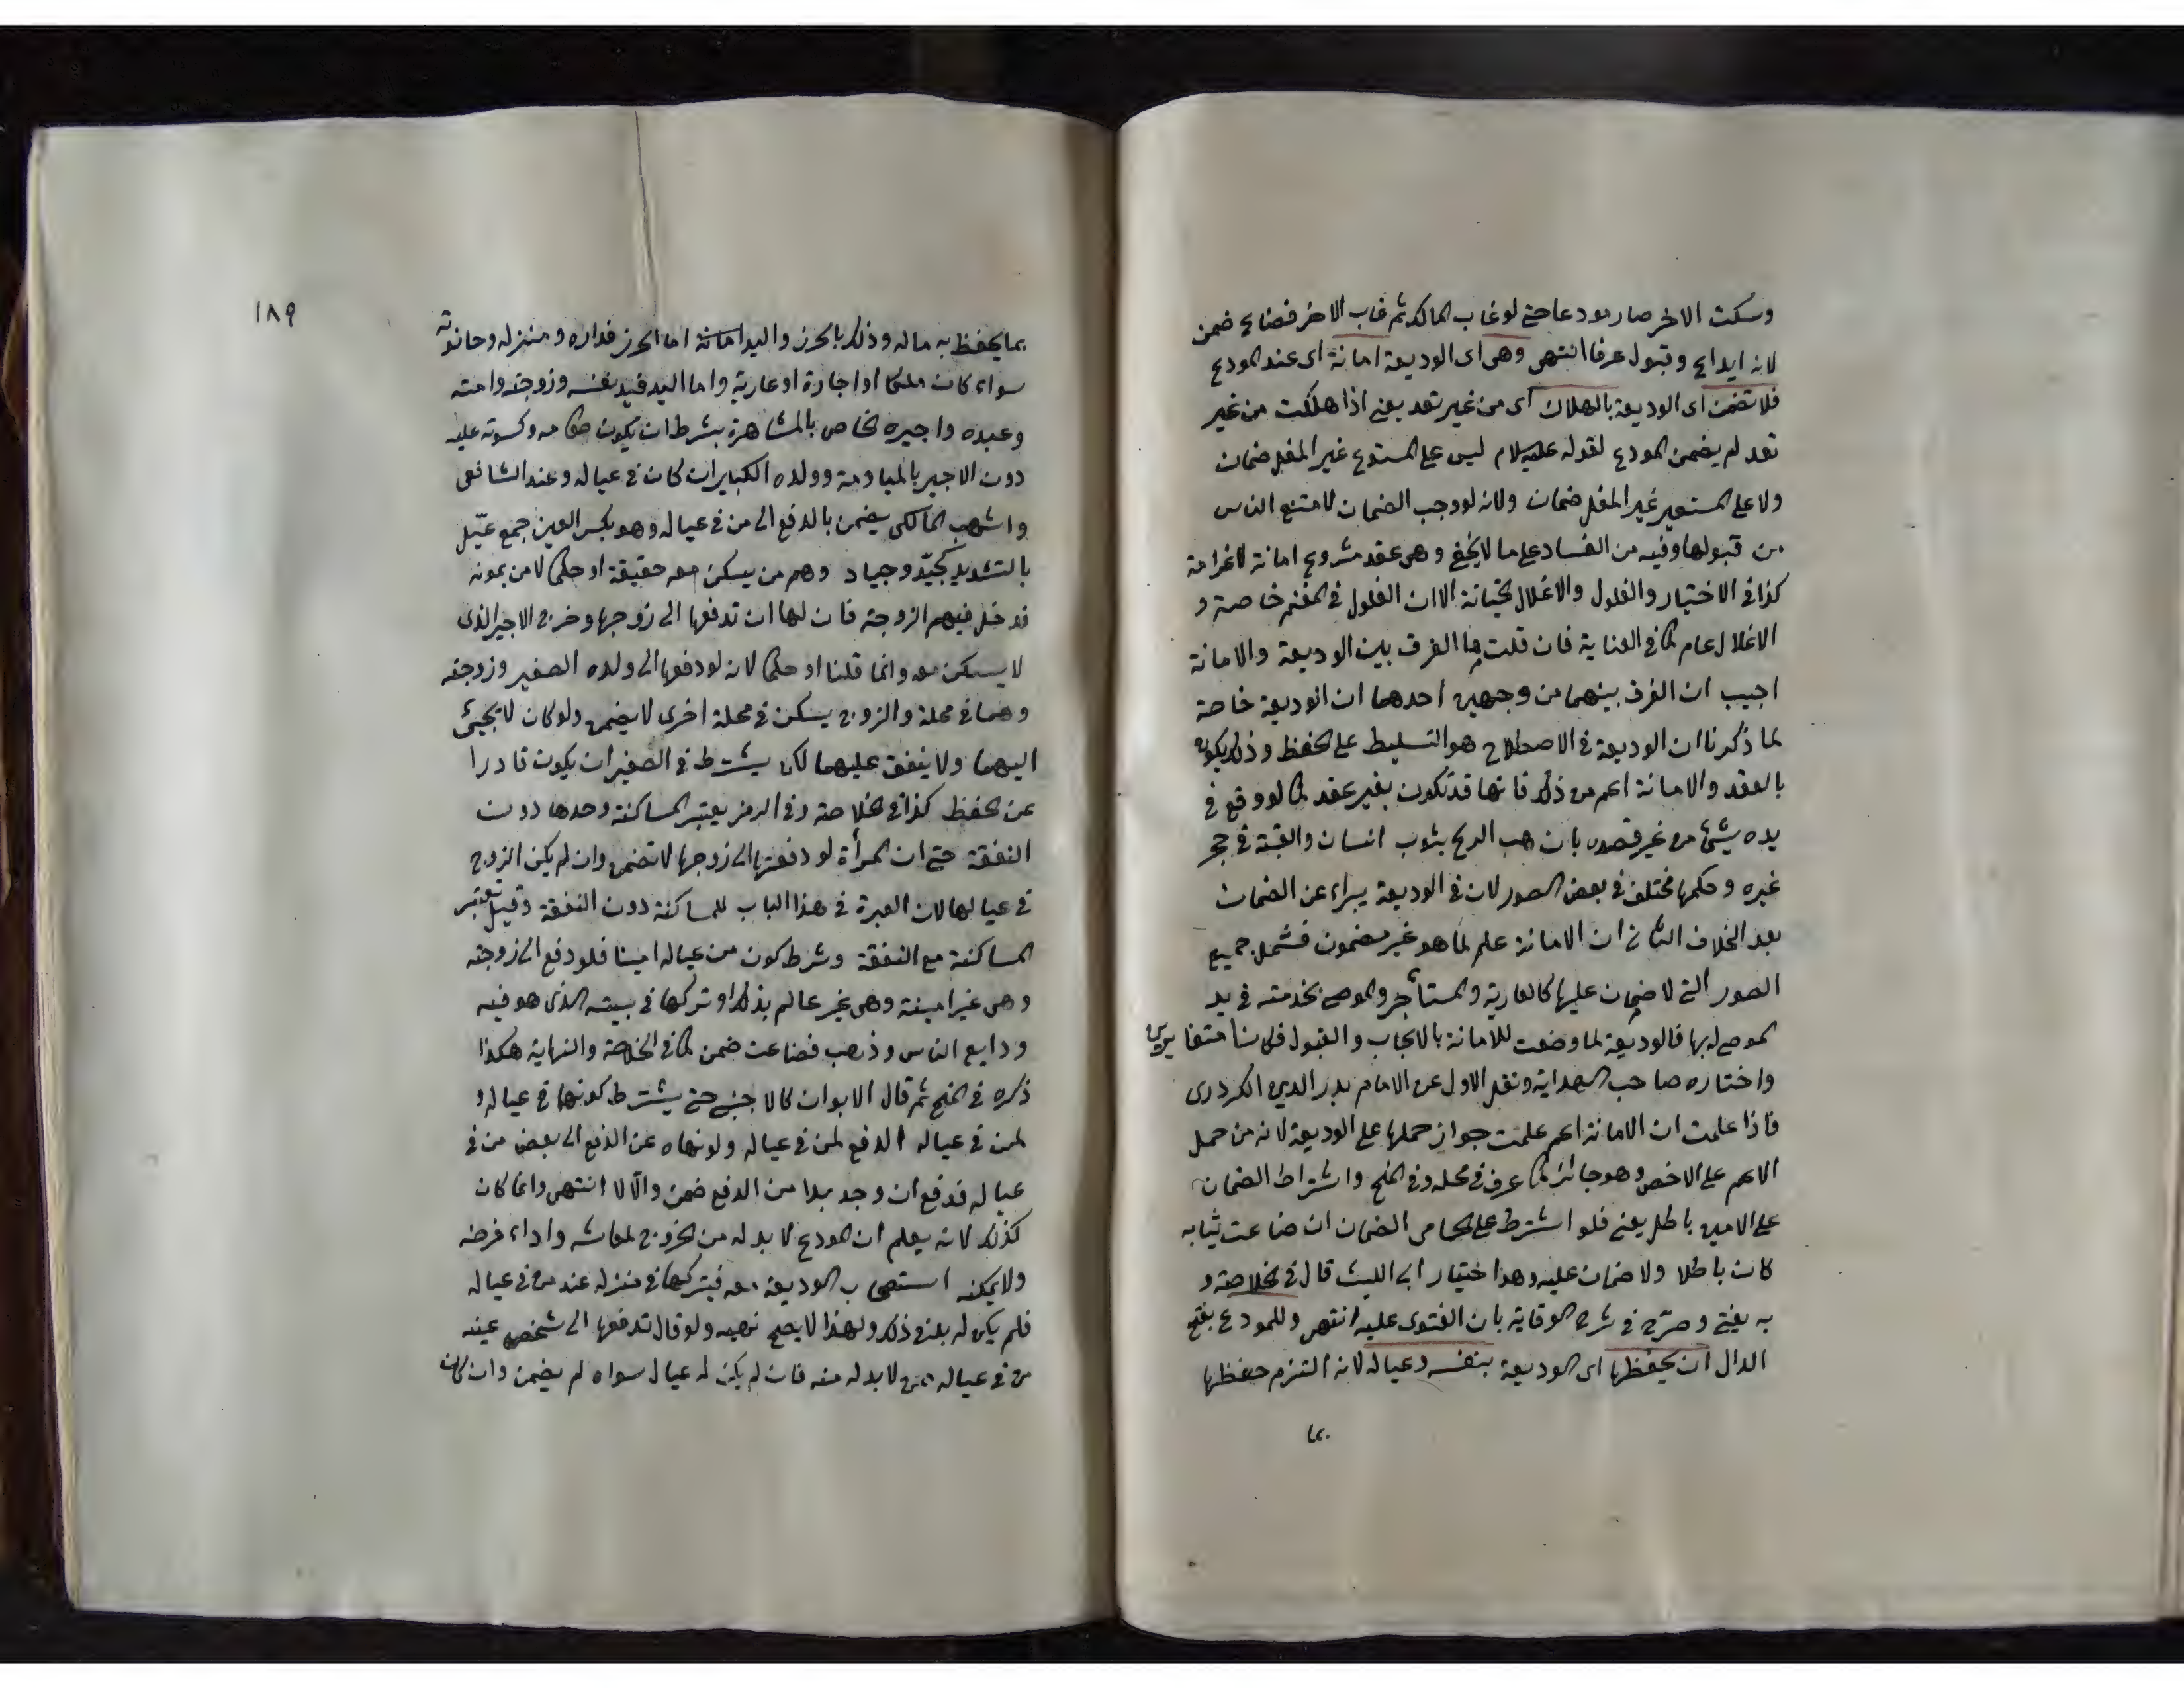 وسكت الاخر صار مودعا حتى لو غاب المالك ثم غاب الاخر فضاع ضمن
لانه ايداع وقبول عرفا انتهى وهى اى الوديعة امانة اى عند المودع
فلا تضمن اى الوديعة بالهلاك اى من غير تعد يعنى اذا هلكت من غير
تعد لم يضمن المودع لقوله عليه السلام ليس على المستودع غير المغل ضمان
ولا على المستعير غير المغل ضمان ولانه لو وجب الضمان لامتنع الناس
من قبولها وفيه من الفساد على ما لا يخفى وهى عقد مشروع امانة لا غرامة
كذا فى الاختيار والغلول والاغلال الخيانة الا ان الغلول فى المغنم خاصة و
الاغلال عام كما فى العناية فان قلت ما الفرق بين الوديعة والامانة
اجيب ان الفرق بينهما من وجهين احدهما ان الوديعة خاصة
لما ذكرنا ان الوديعة فى الاصطلاح هو التسليط على الحفظ وذلك يكون
بالعقد والامانة اعم من ذلك فانها قد تكون بغير عقد كما لو وقع فى
يده شيئ من غير قصد بان هب الريح بثوب انسان والقته فى حجر
غيره وحكمها مختلف فى بعض الصور لان فى الوديعة يبراء عن الضمان
بعد الخلاف الثانى ان الامانة علم لما هو غير مضمون فشمل جميع
الصور التى لا ضمان عليها كالعارية والمستأجر والموصى بخدمته فى يد
الموصى له بها فالوديعة لما وضعت للامانة بالايجاب والقبول فكانا متغايرين
واختاره صاحب الهداية ونقل الاول عن الامام بدر الدين الكردرى
فاذا علمت ان الامانة اعم علمت جواز حملها على الوديعة لانه من حمل
الاعم على الاخص وهو جائز كما عرف فى محله وفى المنح واشتراط الضمان
على الامين باطل يعنى فلو اشترط على الحمامى الضمان ان ضاعت ثيابه
كان باطلا ولا ضمان عليه وهذا اختيار ابى الليث قال فى الخلاصة و
به يفتى وصرح فى شرح الوقاية بان الفتوى عليه انتهى وللمودع بفتح
الدال ان يحفظها اى الوديعة بنفسه وعياله لانه التزم حفظها
بما
١٨٩
بما يحفظ به ماله وذلك بالحرز واليد امانة اما الحرز فداره ومنزله وحانوته
سواء كان ملكا او اجارة او عارية واما اليد فيد نفسه وزوجته وامته
وعبده واجيره الخاص بالمشاهرة بشرط ان يكون طعامه وكسوته عليه
دون الاجير بالمياومة وولده الكبير ان كان فى عياله وعند الشافعى
واشهب المالكى يضمن بالدفع الى من فى عياله وهو بكسر العين جمع عيّل
بالتشديد كجيّد وجياد وهم من يسكن معه حقيقة او حكما لا من يمونه
فدخل فيهم الزوجة فان لها ان تدفعها الى زوجها وخرج الاجير الذى
لا يسكن معه وانما قلنا او حكما لانه لو دفعها الى ولده الصغير وزوجته
وهما فى محلة والزوج يسكن فى محلة اخرى لا يضمن ولو كان لا يجيئ
اليهما ولا ينفق عليهما لكن يشترط فى الصغير ان يكون قادرا
عن الحفظ كذا فى الخلاصة وفى الرمز يعتبر المساكنة وحدها دون
النفقة حتى ان المرأة لو دفعتها الى زوجها لا تضمن وان لم يكن الزوج
فى عيالها لان العبرة فى هذا الباب للمساكنة دون النفقة وقيل تعتبر
المساكنة مع النفقة وشرط كون من عياله امينا فلو دفع الى زوجته
وهى غير امينة وهى غير عالم بذلك او تركها فى بيته الذى هو فيه
ودايع الناس وذهب فضاعت ضمن كما فى الخلاصة والنهاية هكذا
ذكره فى المنح ثم قال الابوان كالاجنبى حتى يشترط كونهما فى عياله و
لمن فى عياله الدفع لمن فى عياله ولو نهاه عن الدفع الى بعض من فى
عياله فدفع ان وجد بدا من الدفع ضمن والّا لا انتهى وانما كان
كذلك لانه يعلم ان المودع لا بد له من الخروج لمعاشه واداء فرضه
ولا يمكنه استصحاب الوديعة معه فيتركها فى منزله عند من فى عياله
فلم يكن له بد من ذلك ولهذا لا يصح نهيه ولو قال تدفعها الى شخص عينه
من فى عياله ممن لا بد له منه فان لم يكن له عيال سواه لم يضمن وان كان